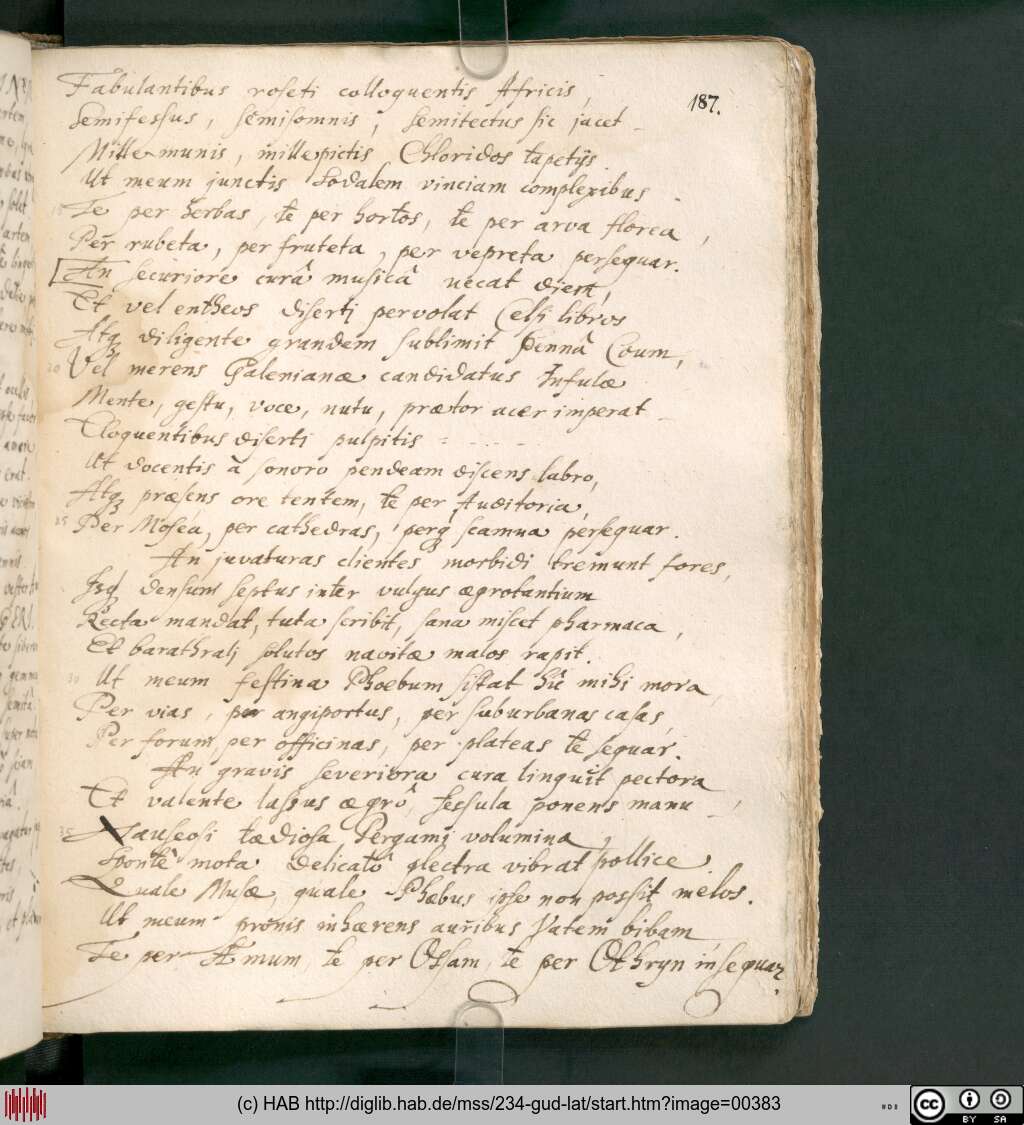 187.
Fabulantibus roseti colloquentis Africis,
Semifessus, semisomnis, semitectus sic jacet
Mille munis, mille pictis Chloridos tapetijs.
Ut meum junctis sodalem vinciam complexibus
Te per herbas, te per hortos, te per arva florea,
Per rubeta, per fruteta, per vepreta persequar.
An securiore curâ musicâ necat diem,
Et vel entheos diserti pervolat Celsi libros
Atq diligente grandem sublimit pennâ Coum,
20 Vel merens Galenianæ candidatus Infulæ
Mente, gestu, voce, nutu, prætor acer imperat
Eloquentibus diserti pulpitis
Ut docentis â sonoro pendeam discens labro,
Atq præsens ore tentem, te per Auditoria,
25 Per Mosea, per cathedras, perq scamna persequar.
An juvaturas clientes morbidi tremunt fores,
Isq densum septus inter vulgus ægrotantium
Recta mandat, tuta scribit, sana miscet pharmaca,
Et barathralj solutos navitæ malos rapit.
30 Ut meum festina Phoebum sistat hûc mihi mora,
Per vias, per angiportus, per suburbanas casas,
Per forum, per officinas, per plateas te sequar.
An gravis severiora cura linquit pectora
Et valente lassus ægrô, sessula ponens manu,
35 Nauseosi tædiosa Pergami volumina
Sponte mota delicatô plectra vibrat pollice.
Quale Musæ, quale Phæbus ipse non possit melos.
Ut meum pronis inhærens auribus Vatem bibam
Te per Æmum, te per Ossam, te per Othryn insequar.
(c) HAB http://diglib.hab.de/mss/234-gud-lat/start.htm?image=00383
cc BY SA